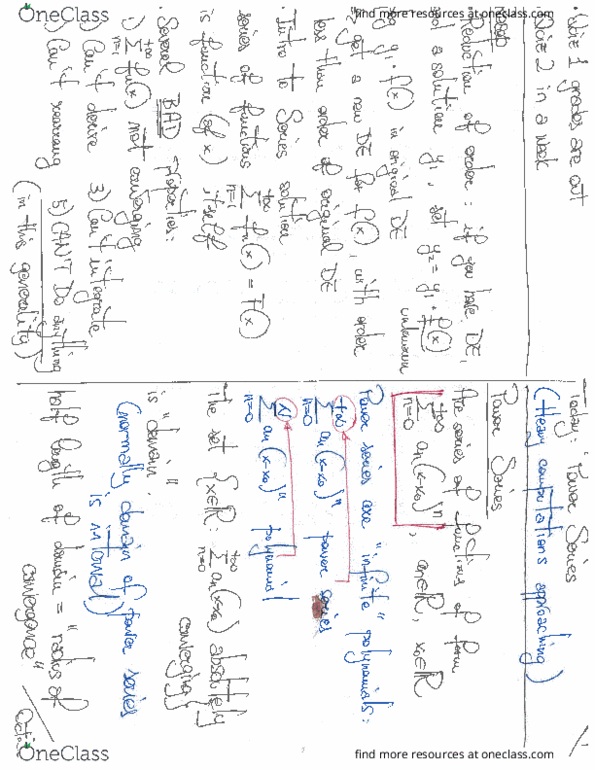 OneClass
find more resources at oneclass.com
· Quiz 1 grades are out
· Quiz 2 in a week
Recap
· Reduction of order: if you have DE,
not a solution y₁, set y₂ = y₁ · f(x)
unknown
y₁ · f(x) in original DE
get a new DE for f(x), with order
less than order of original DE
· Intro to Series solution
series of functions +∞ Σ n=1 fₙ(x) = F(x)
is function (of x) itself
· Several BAD Properties:
1) +∞ Σ n=1 fₙ(x) not converging
2) Can't derive 3) Can't integrate
4) Can't rearrang 5) CAN'T Do anything
(in this generality)
Today: Power Series
(Heavy computations approaching)
Power Series
Are series of functions of form
+∞ Σ n=0 aₙ(x-x₀)ⁿ, aₙ∈ℝ, x₀∈ℝ
Power series are "infinite" polynomials:
+∞ Σ n=0 aₙ(x-x₀)ⁿ power series
N Σ n=0 aₙ(x-x₀)ⁿ polynomial
The set {x∈ℝ: +∞ Σ n=0 aₙ(x-x₀)ⁿ absolutely
converging}
is "domain".
(normally domain of power series
is interval)
half length of domain = "radius of
convergence"
OneClass
find more resources at oneclass.com